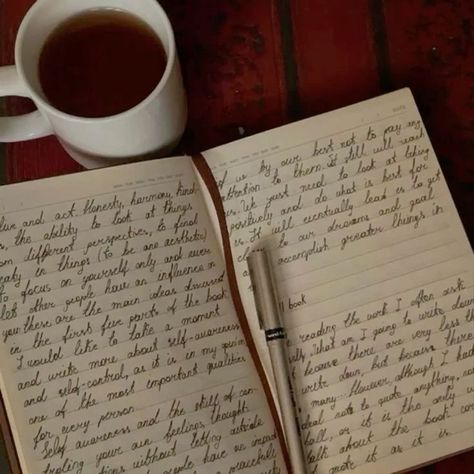 live and act. Honesty, harmony, kind-
s, the ability to look at things
from different perspectives, to find
beauty in things (to be an aesthetic)
to focus on yourself only and never
let other people have an influence on
you these are the main ideas discussed
in the first five parts of the book.
I would like to take a moment
and write more about self-awareness
and self-control, as it is in my opinion
one of the most important qualities
for every person.
Self awareness and the skill of con-
troling your own feelings, thoughts
actions without letting outside
people have do impact
peaceful
of us by our best not to pay any
attention to them. It still will reach
us. We just need to look at being
positively and do what is best for
us. It will eventually lead us to get
closer to our dreams and goal
and accomplish greater things in
book
reading the work I often ask
myself "What am I going to write down
because there are very less th
write down, but because there
many... However, although I have
decided not to quote anything, not
all, or it is the only
talk about the book
quote it as it is